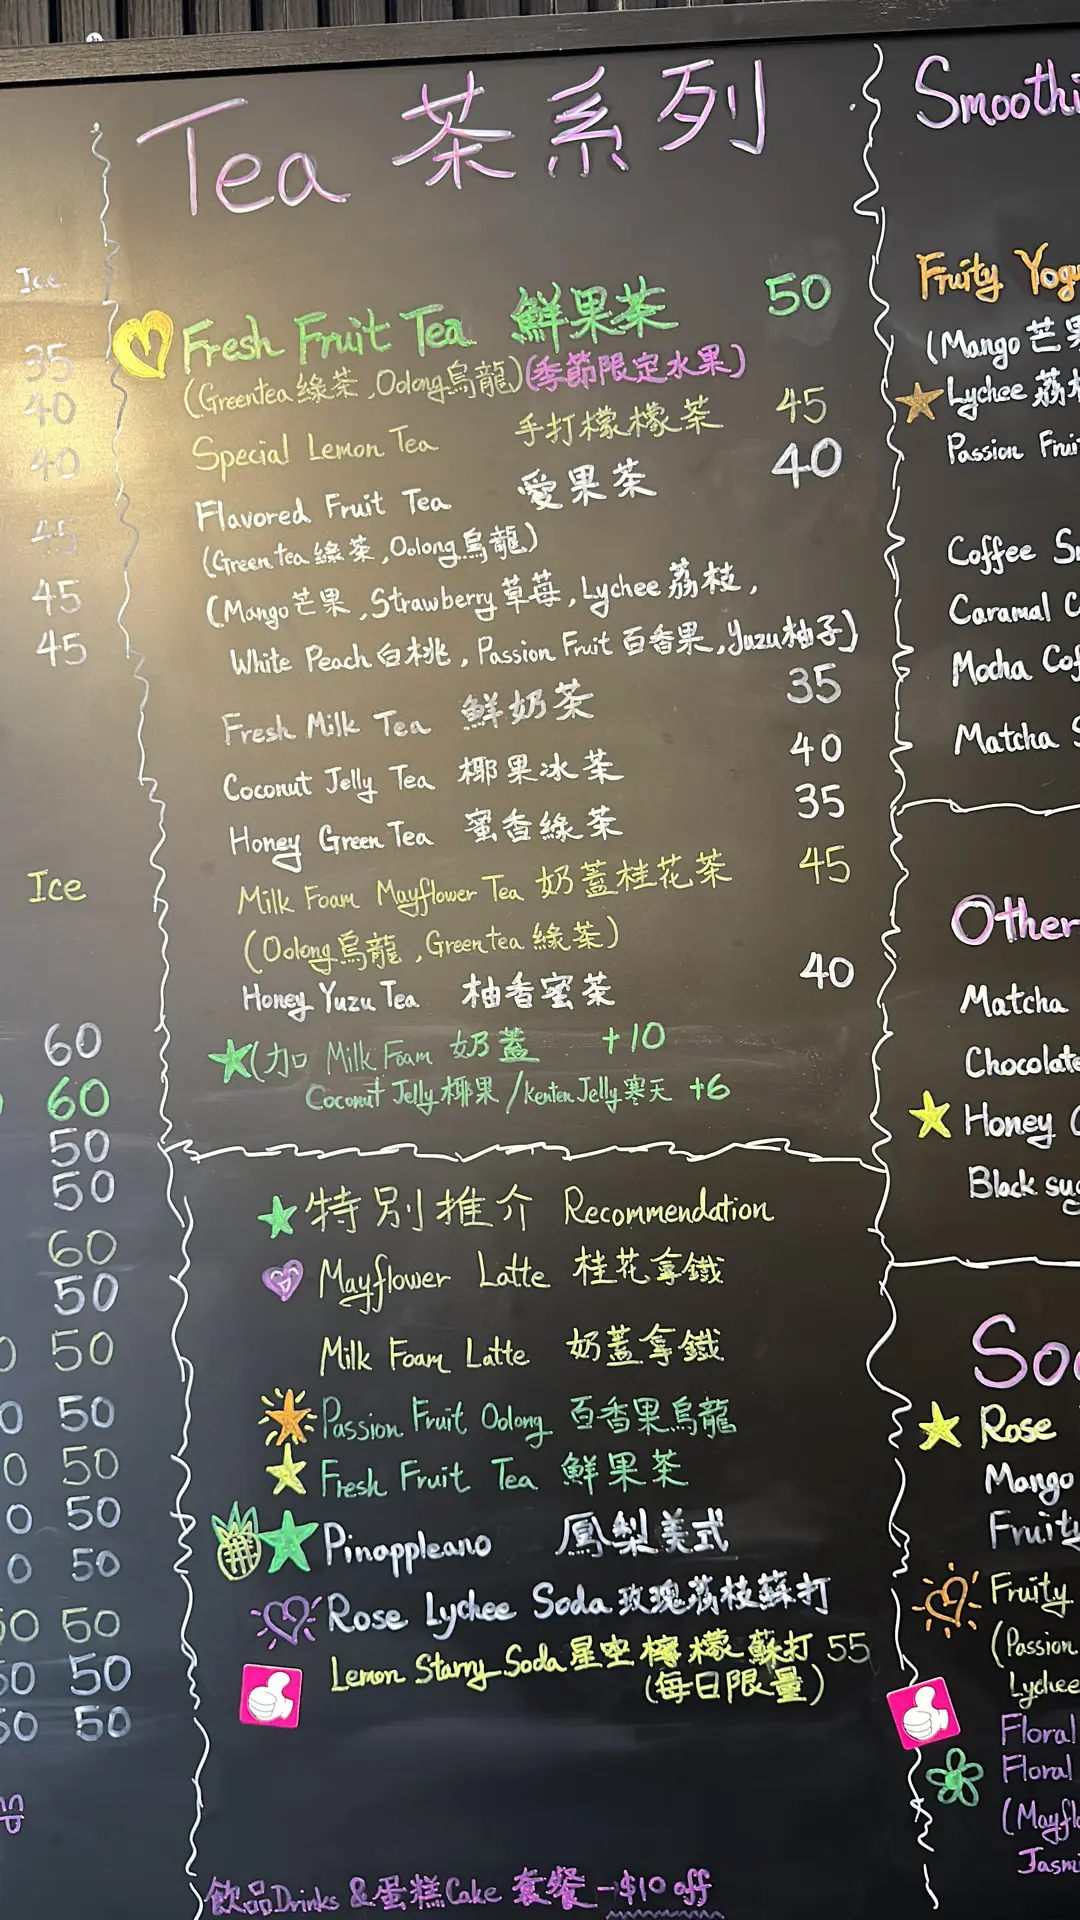 Tea 茶系列
Fresh Fruit Tea 鮮果茶 50
(Greentea 綠茶, Oolong烏龍)(季節限定水果)
Special Lemon Tea 手打檬檬茶 45
Flavored Fruit Tea 愛果茶 40
(Green tea 綠茶, Oolong烏龍)
(Mango芒果, Strawberry草莓, Lychee荔枝,
White Peach白桃, Passion Fruit百香果, Yuzu柚子)
Fresh Milk Tea 鮮奶茶 35
Coconut Jelly Tea 椰果冰茶 40
Honey Green Tea 蜜香綠茶 35
Milk Foam Mayflower Tea 奶蓋桂花茶 45
(Oolong烏龍, Green tea 綠茶)
Honey Yuzu Tea 柚香蜜茶 40
(加 Milk Foam 奶蓋 +10
Coconut Jelly椰果/Kenten Jelly寒天 +6
特別推介 Recommendation
Mayflower Latte 桂花拿鐵
Milk Foam Latte 奶蓋拿鐵
Passion Fruit Oolong 百香果烏龍
Fresh Fruit Tea 鮮果茶
Pinappleano 鳳梨美式
Rose Lychee Soda 玫瑰荔枝蘇打
Lemon Starry Soda 星空檸檬蘇打 55
(每日限量)
飲品Drinks & 蛋糕Cake 套餐 -$10 off
Ice
35
40
40
45
45
45
Ice
60
60
50
50
60
50
50
50
50
50
50
50
50
50
Smoothi
Fruity Yogu
(Mango 芒果
Lychee 荔枝
Passion Frui
Coffee S
Caramal C
Mocha Cof
Matcha S
Other
Matcha
Chocolate
Honey
Black sug
So
Rose
Mango
Fruity
Fruity
(Passion
Lychee
Floral
Floral
(Mayflo
Jasmi